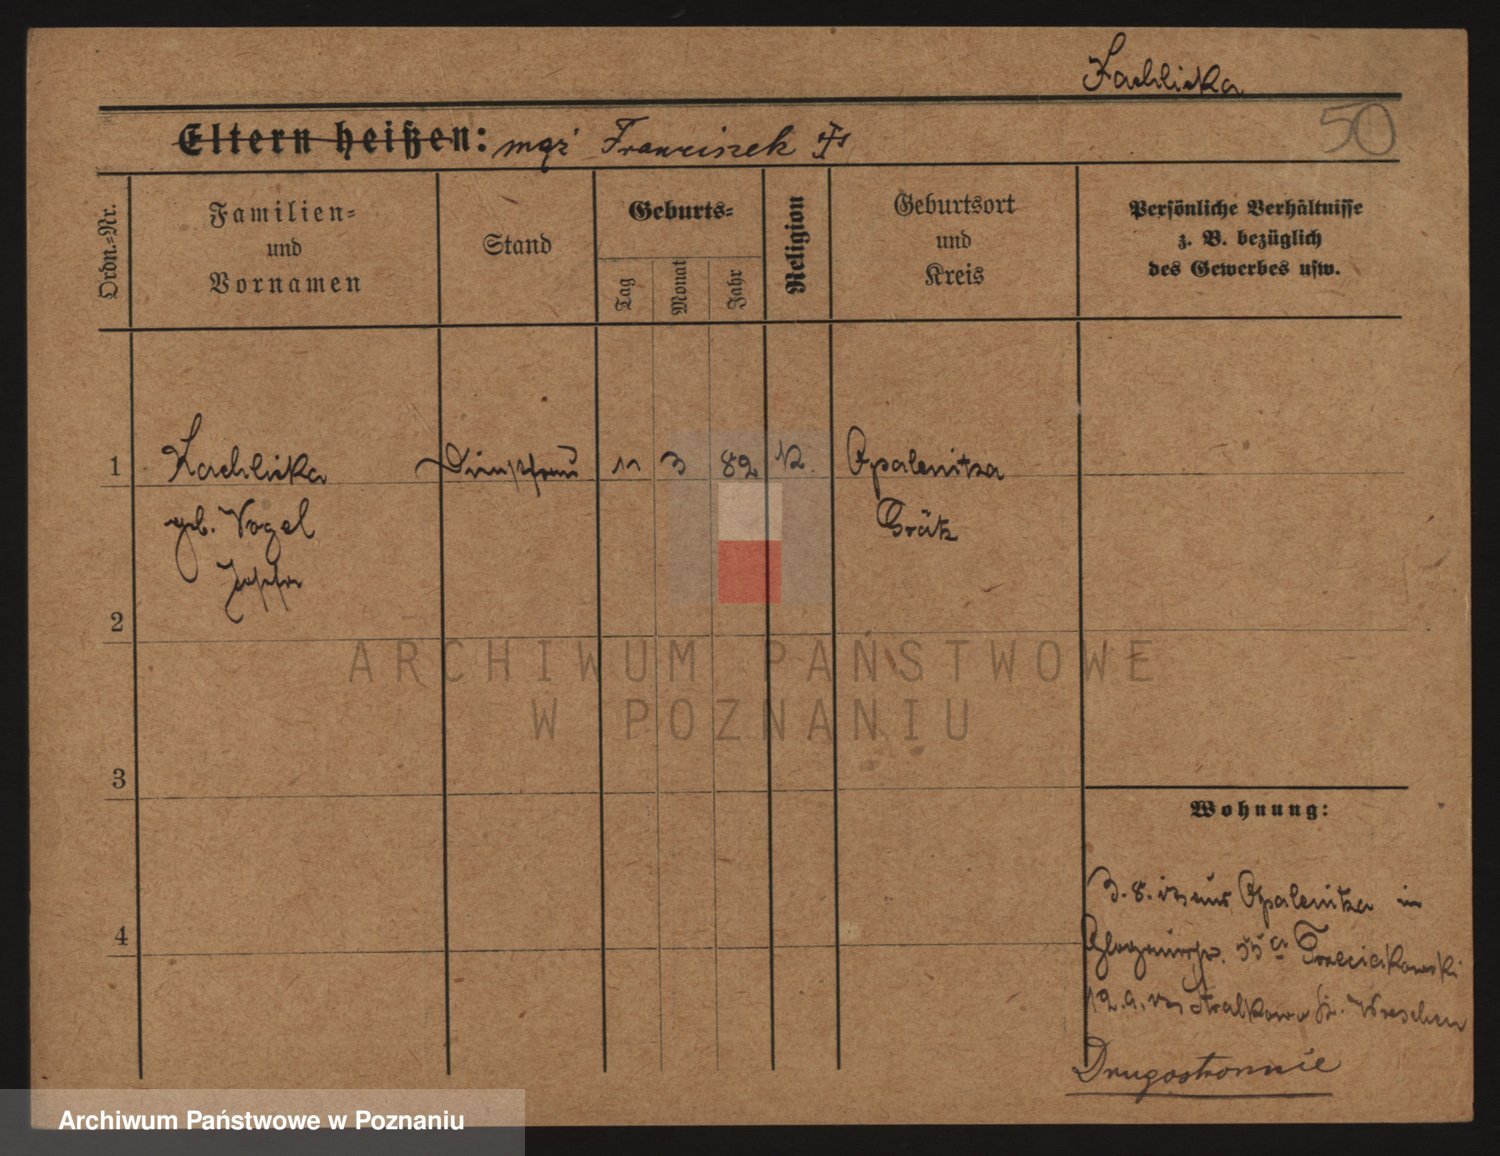 Kachlicka
50
Eltern heißen: mąż Franciszek
Ordn.-Nr.
Familien-
und
Vornamen
Stand
Geburts-
Tag
Monat
Jahr
Religion
Geburtsort
und
Kreis
Persönliche Verhältnisse
z. B. bezüglich
des Gewerbes usw.
1 Kachlicka 3 82 Opalenitza
geb. Vogel Grätz
Josefa
2
ARCHIWUM PAŃSTWOWE
W POZNANIU
3
Wohnung:
3. 8. aus Opalenitza in
4
Glogauerstr. 55a Trzeciakowski
12. 9. Stralkowo Kr. Wreschen
Drugostronnie
Archiwum Państwowe w Poznaniu